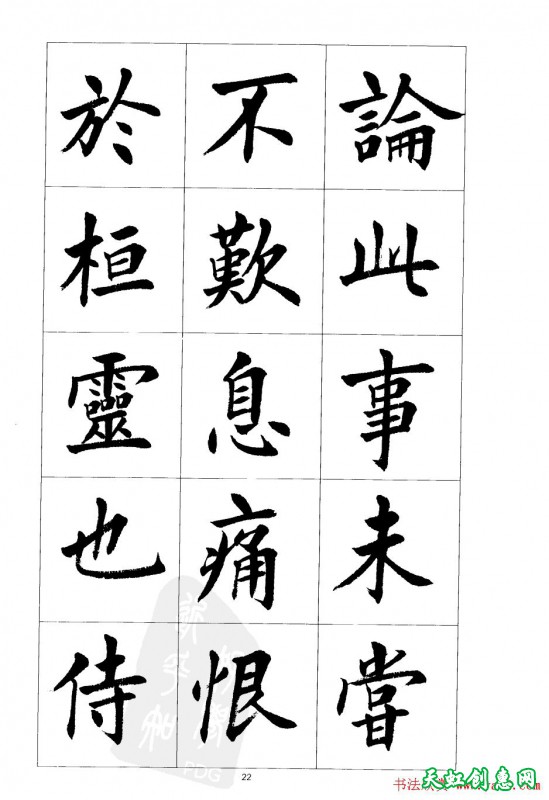 論此事未嘗
不歎息痛恨
於桓靈也侍
22
天虹创惠网
PDG